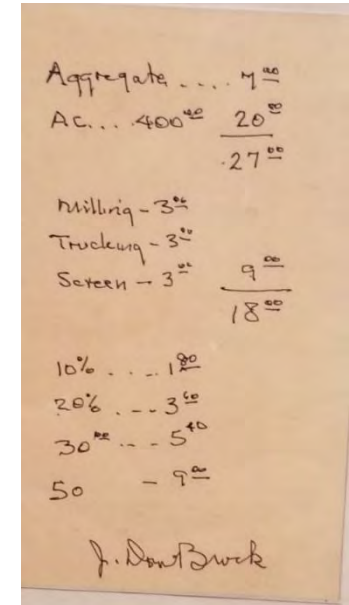 Aggregate .... 7 00
AC... 400 00 20 00
27 00
Milling - 3 00
Trucking - 3 00
Screen - 3 00 9 00
18 00
10% .... 1 80
20% ... 3 60
30 00 ... 5 40
50 - 9 00
J. Don Brock